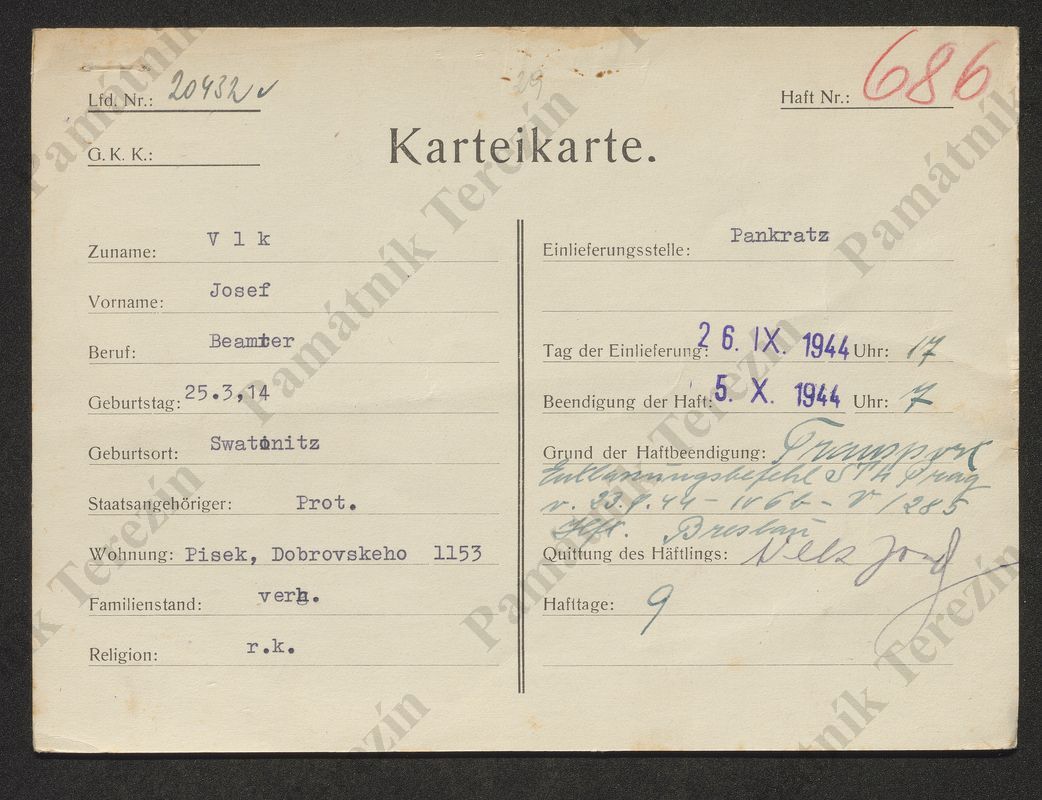 Lfd. Nr.: 20432 ✓
Haft Nr.: 686
29
G. K. K.:
Karteikarte.
Zuname: Vlk
Vorname: Josef
Beruf: Beamter
Geburtstag: 25.3,14
Geburtsort: Swatonitz
Staatsangehöriger: Prot.
Wohnung: Pisek, Dobrovskeho 1153
Familienstand: verh.
Religion: r.k.
Einlieferungsstelle: Pankratz
Tag der Einlieferung: 26. IX. 1944 Uhr: 17
Beendigung der Haft: 5. X. 1944 Uhr: 7
Grund der Haftbeendigung: Transport
Entlassungsbefehl Prag
v. 23.9.44 - IV 6b - V 1285
Breslau
Quittung des Häftlings: Vlk Josef
Hafttage: 9
Památník Terezín